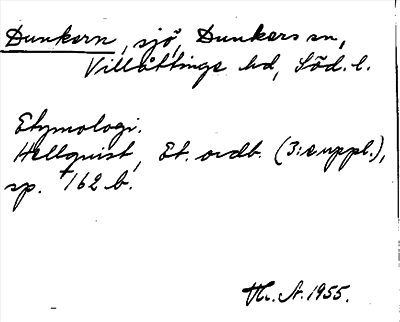 Dunkern, sjö, Dunkers sn,
Villåttinge hd, Söd. l.
Etymologi.
Hellquist, Et. ordb. (3:e uppl.),
sp. 162 b.
A. 1955.